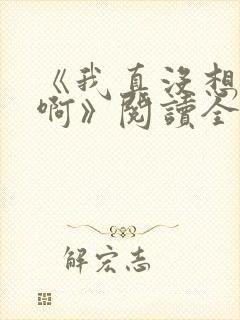 《我真沒想
啊》閱讀全
解宏志